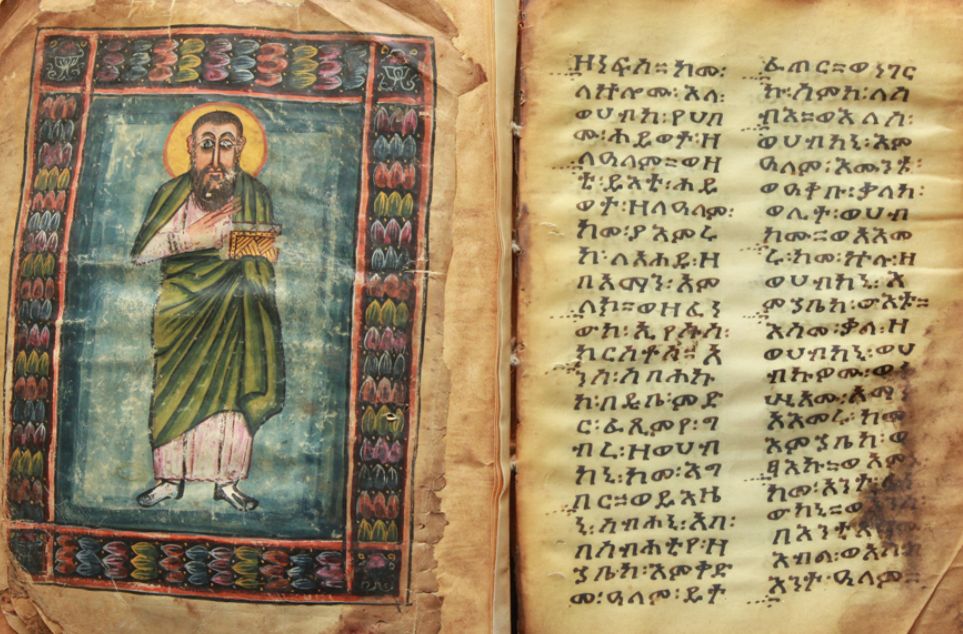 ዘነፍስ። ከመ፡
ለኵሎሙ፡ እለ፡
ወሀብከ፡ የሀብ
ሙ፡ ሕይወት፡ ዘ
ለዓለም። ወዛ
ቲ፡ ይእቲ፡ ሕይ
ወት፡ ዘለዓለም፡
ከመ፡ ያእምሩ
ከ፡ ለአሐዱ፡ ዘ
በአማን፡ አም
ላክ። ወዘፈነ
ውከ፡ ኢየሱስ፡
ክርስቶስ። አ
ንሰ፡ ሰባሕኩ
ከ፡ በዲበ፡ ምድ
ር፡ ፈጺምየ፡ ግ
ብረ፡ ዘወሀብ
ከኒ፡ ከመ፡ እግ
በር። ወይእዜ
ኒ፡ ሰብሐኒ፡ አባ፡
በስብሐቲየ፡ ዘ
ኀቤከ፡ እምቅድ
መ፡ ዓለም፡ ይት
ፈጠር። ወነገር
ኩ፡ ስምከ፡ ለሰ
ብእ። ወእለሰ፡
ወሀብከኒ፡ እም
ዓለም፡ እሙንቱ፡
ወዓቀቡ፡ ቃለከ፡
ወሊተ፡ ወሀብ
ከሙ። ወአእመ
ሩ፡ ከመ፡ ኵሉ፡ ዘ
ወሀብከኒ፡ እ
ምኀቤከ፡ ውእቱ።
እስመ፡ ቃለ፡ ዘ
ወሀብከኒ፡ ወሀ
ብኩዎሙ፡
አማነ
አእመሩ፡ ከመ
እምኀቤከ፡ ወ
ፃእኩ። ወአም
ከመ፡ አንተ፡
ውከኒ።
እብል፡
እንተ፡ ዓለም።